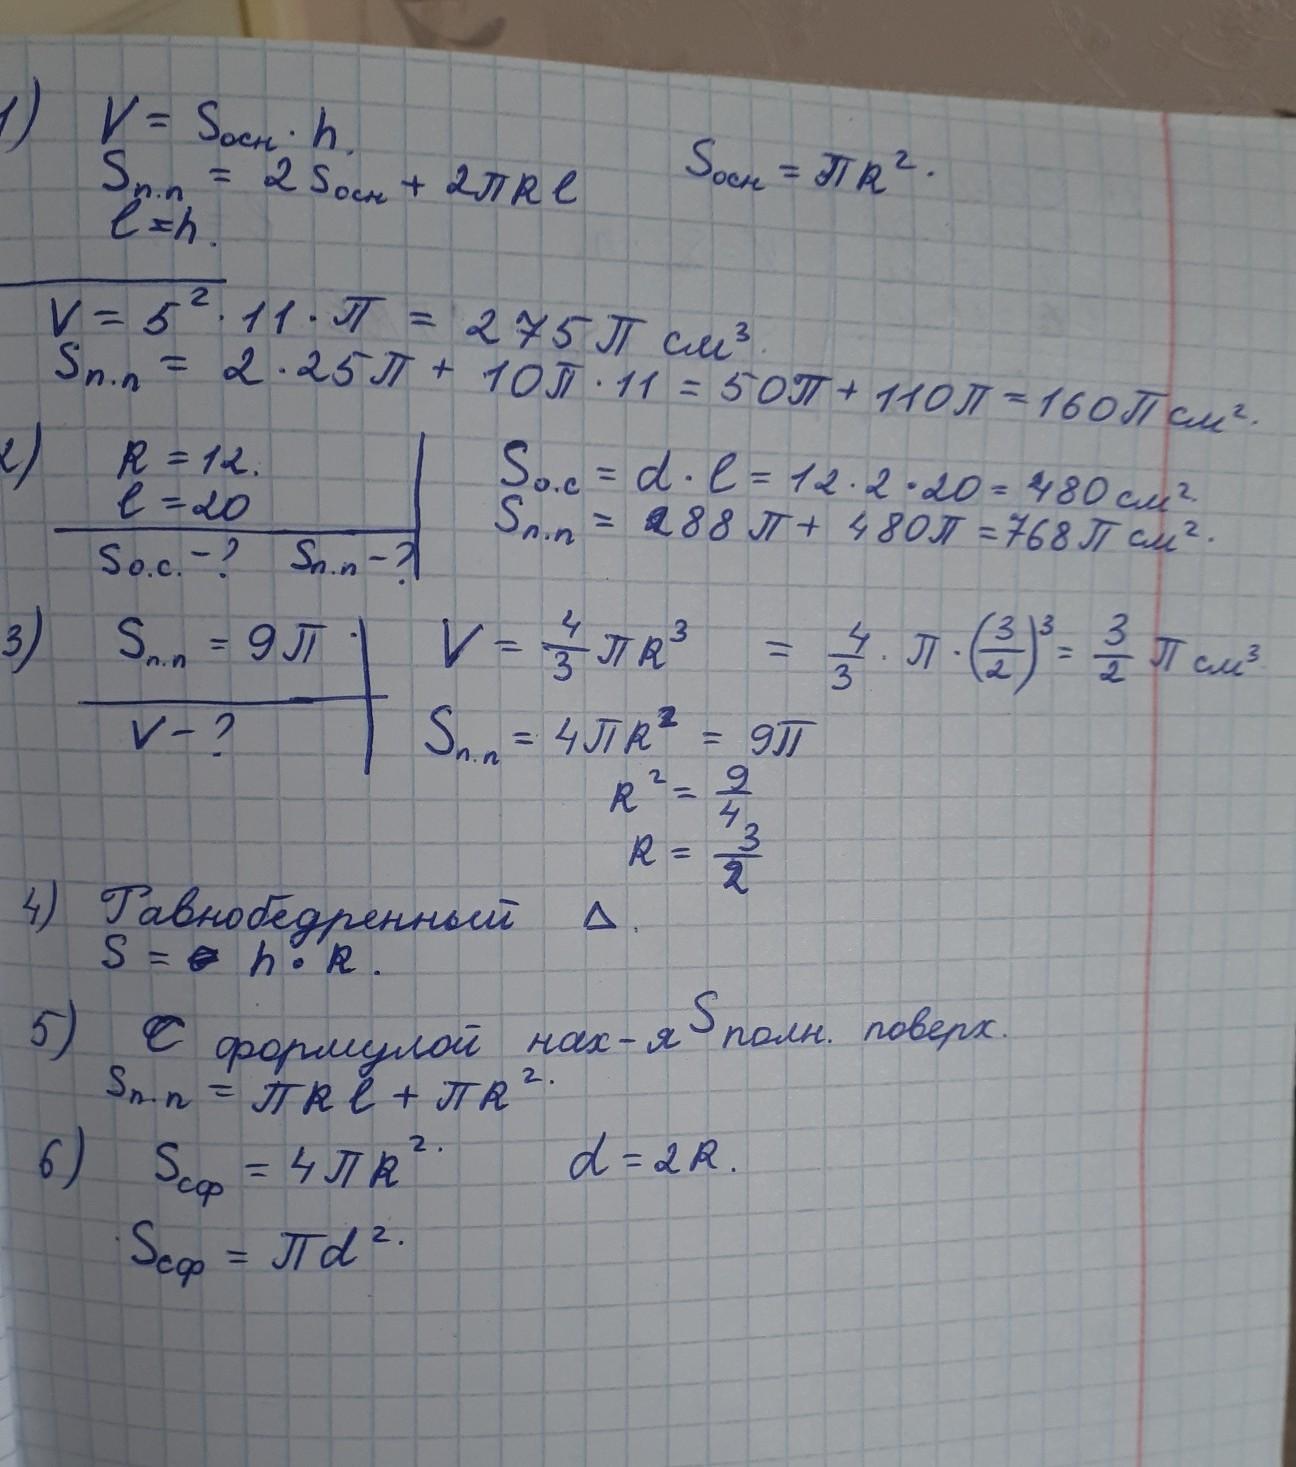 1) V = Sосн · h.
Sп.п = 2Sосн + 2πRl Sосн = πR².
l = h.
V = 5² · 11 · π = 275π см³.
Sп.п = 2 · 25π + 10π · 11 = 50π + 110π = 160π см².
2) R = 12.
l = 20
Sо.с. - ? Sп.п - ?
Sо.с = d · l = 12 · 2 · 20 = 480 см²
Sп.п = 288π + 480π = 768π см².
3) Sп.п = 9π
V - ?
V = 4/3 πR³ = 4/3 · π · (3/2)³ = 3/2 π см³
Sп.п = 4πR² = 9π
R² = 9/4
R = 3/2
4) Равнобедренный Δ.
S = h · R.
5) С формулой нах-я Sполн. поверх.
Sп.п = πRl + πR².
6) Sсф = 4πR². d = 2R.
Sсф = πd².